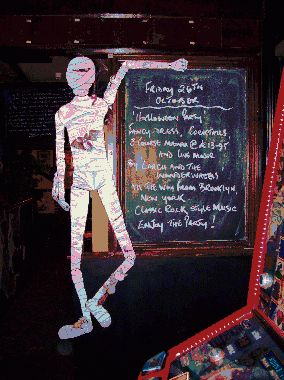 FRIDAY 26TH
OCTOBER
HALLOWEEN PARTY
FANCY DRESS, COCKTAILS
3 COURSE MENU @ £13.95
AND LIVE MUSIC
BY AND THE
WONDERWEBS
ALL THE WAY FROM BROOKLYN
NEW YORK
CLASSIC ROCK STYLE MUSIC
ENJOY THE PARTY!